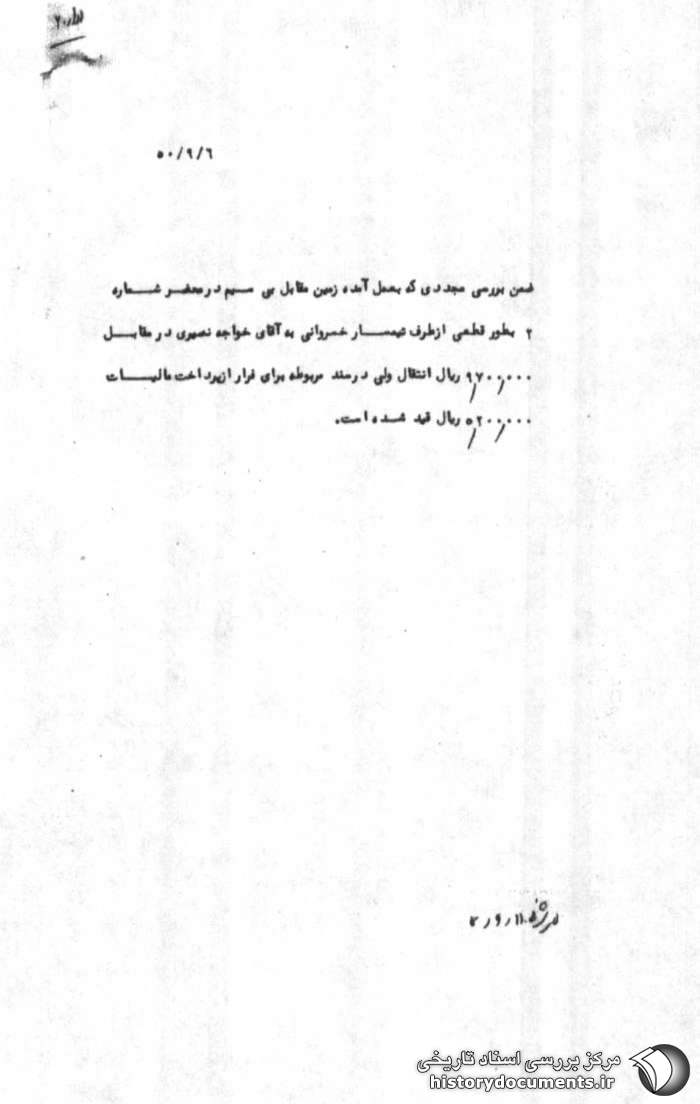 ۵۰/۹/٦
ضمن بررسی مجددی که بعمل آمده زمین مقابل بی سیم در محضر شماره
۲ بطور قطعی ازطرف تیمسار خسروانی به آقای خواجه نصیری در مقابل
۹٫۷۰۰٫۰۰۰ ریال انتقال ولی درسند مربوطه برای فرار ازپرداخت مالیات
۵٫۲۰۰٫۰۰۰ ریال قید شده است.
مرکز بررسی اسناد تاریخی
historydocuments.ir